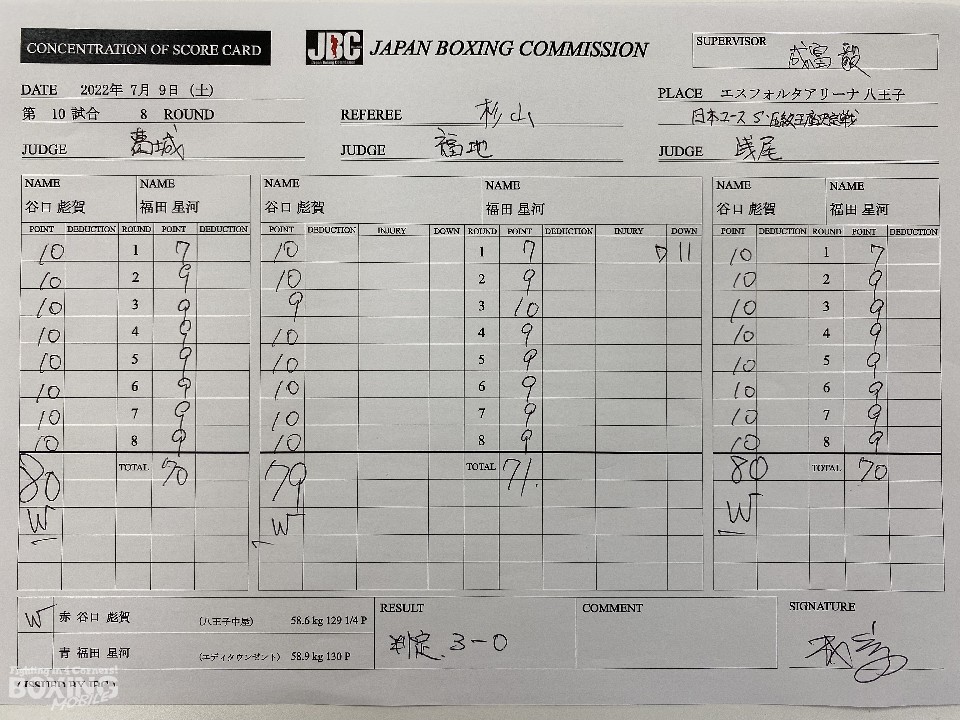 CONCENTRATION OF SCORE CARD
JBC JAPAN BOXING COMMISSION
Japan Boxing Commission
SUPERVISOR 成富 毅
DATE 2022年 7月 9日 (土)
PLACE エスフォルタアリーナ八王子
第 10 試合 8 ROUND
REFEREE 杉山
日本ユース S・F級王座決定戦
JUDGE 葛城
JUDGE 福地
JUDGE 浅尾
NAME NAME NAME NAME NAME NAME
谷口 彪賀 福田 星河 谷口 彪賀 福田 星河 谷口 彪賀 福田 星河
POINT DEDUCTION ROUND POINT DEDUCTION POINT DEDUCTION INJURY DOWN ROUND POINT DEDUCTION INJURY DOWN POINT DEDUCTION ROUND POINT DEDUCTION
10 1 7 10 1 7 D 11 10 1 7
10 2 9 10 2 9 10 2 9
10 3 9 9 3 10 10 3 9
10 4 9 10 4 9 10 4 9
10 5 9 10 5 9 10 5 9
10 6 9 10 6 9 10 6 9
10 7 9 10 7 9 10 7 9
10 8 9 10 8 9 10 8 9
80 TOTAL 70 79 TOTAL 71. 80 TOTAL 70
W W W
W 赤 谷口 彪賀 (八王子中屋) 58.6 kg 129 1/4 P
青 福田 星河 (エディタウンゼント) 58.9 kg 130 P
RESULT
判定. 3-0
COMMENT
SIGNATURE
Fighting in 4 Corners!
BOXING
MOBILE
( ISSUED BY JBC )